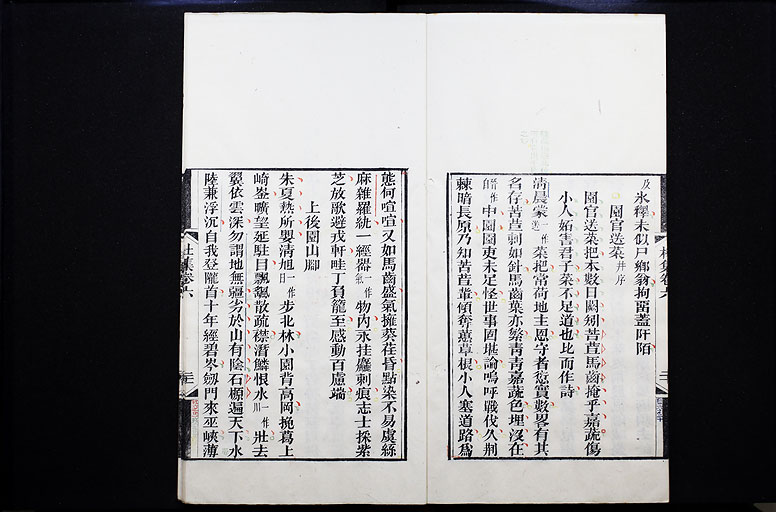 及 氷釋未似尸鄉翁拘留蓋阡陌
園官送菜 并序
園官送菜把本數日闕矧苦苣馬齒掩乎嘉蔬傷
小人妬害君子菜不足道也比而作詩
清晨蒙 一作送 菜把常荷地主恩守者愆實數畧有其
名存苦苣刺如針馬齒葉亦繁青青嘉蔬色埋沒在
中園園吏未足怪世事固堪論嗚呼戰伐久荆
棘暗長原乃知苦苣輩傾奪蕙草根小人塞道路爲
態何喧喧又如馬齒盛氣擁葵荏昏點染不易虞絲
麻雜羅紈一經器 一作氣 物內永挂麤刺痕志士採紫
芝放歌避戎軒畦丁負籠至感動百慮端
上後園山腳
朱夏熱所嬰清旭 一作旦 步北林小園背高岡挽葛上
崎崟曠望延駐目飄颻散疏襟潛鱗恨水 一作川 壯去
翼依雲深勿謂地無疆劣於山有陰石榞遍天下水
陸兼浮沉自我登隴首十年經碧岑劒門來巫峽薄
杜集卷六